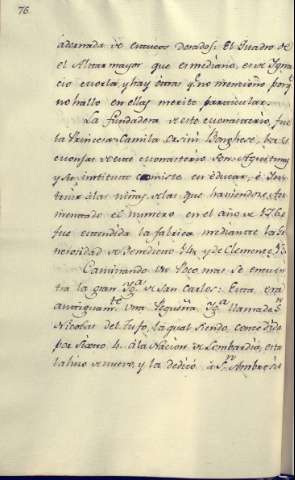 76.
adornada de estucos dorados: El Quadro de
el Altar mayor que es mediano, es de Igna
cio
y hay otras qͤ. no menciono porqͤ
no hallo en ellas merito particular.
La fundadora de este monasterio, fue
la Princesa Camila Orsini Borghese,
de este monasterio son Agustinas
y su instituto consiste en educar, é Ins
truir á las niñas, de las que haviendose au
mentado el numero en el año de 1760
fue estendida la fabrica mediante la Ge
nerosidad de Benedicto 14. y de Clemente 13.
Caminando un Poco mas se encuen
tra la gran Ygᵃ. de San Carlos: Esta, era
antiguamᵗᵉ. una Pequeña Ygᵃ. llamada Sⁿ.
Nicolas del Tufo, la qual siendo concedida
por Sixto 4. á la Nacion de Lombardia, esta
la hizo de nuevo, y la dedicó á Sⁿ. Ambrosio